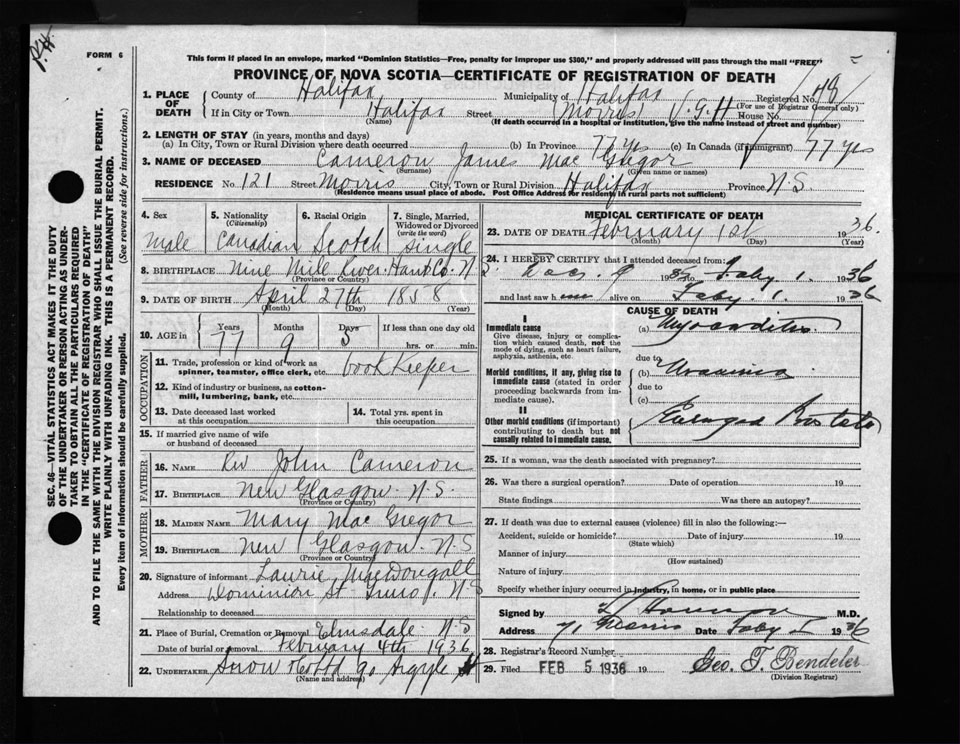 P.H.
FORM 6
This form if placed in an envelope, marked "Dominion Statistics—Free, penalty for improper use $300," and properly addressed will pass through the mail "FREE"
PROVINCE OF NOVA SCOTIA—CERTIFICATE OF REGISTRATION OF DEATH
SEC. 46—VITAL STATISTICS ACT MAKES IT THE DUTY
OF THE UNDERTAKER OR PERSON ACTING AS UNDER-
TAKER TO OBTAIN ALL THE PARTICULARS REQUIRED
IN THE "CERTIFICATE OF REGISTRATION OF DEATH"
AND TO FILE THE SAME WITH THE DIVISION REGISTRAR WHO SHALL ISSUE THE BURIAL PERMIT.
WRITE PLAINLY WITH UNFADING INK. THIS IS A PERMANENT RECORD.
Every item of information should be carefully supplied. (See reverse side for instructions.)
1. PLACE OF DEATH County of Halifax Municipality of Halifax Registered No. 48
(For use of Registrar General only)
If in City or Town Halifax Street Morris V.G.H House No.
(Name) (If death occurred in a hospital or institution, give the name instead of street and number)
2. LENGTH OF STAY (in years, months and days)
(a) In City, Town or Rural Division where death occurred (b) In Province 77 yrs (c) In Canada (if immigrant) 77 yrs
3. NAME OF DECEASED Cameron James Mac Gregor
(Surname) (Given name or names)
RESIDENCE No. 121 Street Morris City, Town or Rural Division Halifax Province N.S.
(Residence means usual place of abode. Post Office Address for residents in rural parts not sufficient)
4. Sex male
5. Nationality (Citizenship) Canadian
6. Racial Origin Scotch
7. Single, Married, Widowed or Divorced (write the word) single
8. BIRTHPLACE Nine Mile River. Hants Co. N.S.
9. DATE OF BIRTH April 27th 1858
(Month) (Day) (Year)
10. AGE in Years 77 Months 9 Days 5 If less than one day old hrs. or min.
OCCUPATION
11. Trade, profession or kind of work as spinner, teamster, office clerk, etc. book Keeper
12. Kind of industry or business, as cotton-mill, lumbering, bank, etc.
13. Date deceased last worked at this occupation
14. Total yrs. spent in this occupation
15. If married give name of wife or husband of deceased
FATHER
16. NAME Rev John Cameron
17. BIRTHPLACE New Glasgow. N.S.
(Province or Country)
MOTHER
18. MAIDEN NAME Mary Mac Gregor
19. BIRTHPLACE New Glasgow. N.S
(Province or Country)
20. Signature of informant Laurie MacDougall
Address Dominion St Truro. N.S
Relationship to deceased
21. Place of Burial, Cremation or Removal Elmsdale N.S
Date of burial or removal February 4th 1936
22. UNDERTAKER Snow & Co Ltd 90 Argyle St
(Name and address)
MEDICAL CERTIFICATE OF DEATH
23. DATE OF DEATH February 1st 1936.
(Month) (Day) (Year)
24. I HEREBY CERTIFY that I attended deceased from:
Dec. 9 1935 to Feby 1. 1936
and last saw h im alive on Feby. 1. 1936
CAUSE OF DEATH
I
Immediate cause
Give disease, injury or complication which caused death, not the mode of dying, such as heart failure, asphyxia, asthenia, etc.
(a) Myocarditis
due to
Morbid conditions, if any, giving rise to immediate cause (stated in order proceeding backwards from immediate cause).
(b) Uraemia
due to
(c)
II
Other morbid conditions (if important) contributing to death but not causally related to immediate cause.
Enlarged Prostate
25. If a woman, was the death associated with pregnancy?
26. Was there a surgical operation? Date of operation 19
State findings Was there an autopsy?
27. If death was due to external causes (violence) fill in also the following:—
Accident, suicide or homicide? Date of injury 19
(State which)
Manner of injury
(How sustained)
Nature of injury
Specify whether injury occurred in industry, in home, or in public place
Signed by M.D.
Address 71 Morris Date Feby 1 1936
28. Registrar's Record Number
29. Filed FEB 5 1936 19 Geo. T. Bendeler
(Division Registrar)